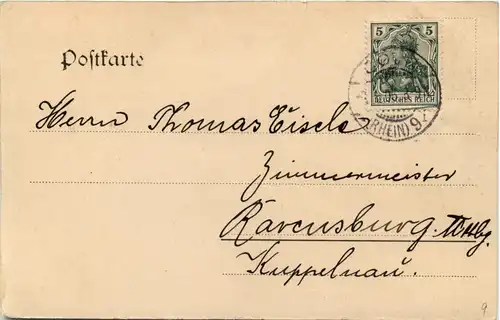 Postkarte
5 5
DEUTSCHES REICH
(RHEIN) 9
Herrn Thomas Eisele
Zimmermeister
Ravensburg. Wttbg.
Kuppelnau.
9